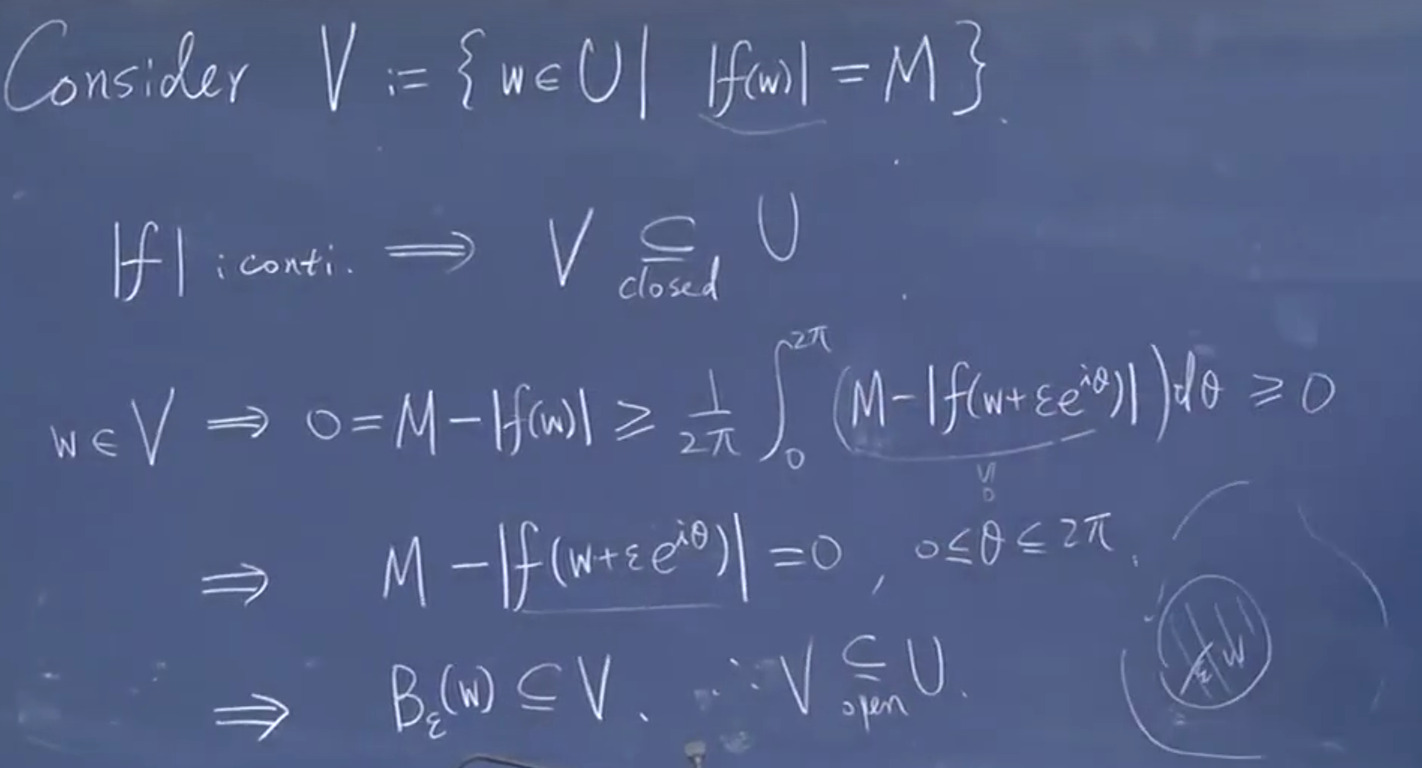 Consider V := { w ∈ U | |f(w)| = M }.
|f| : conti. ⟹ V ⊆ U
closed
w ∈ V ⟹ 0 = M − |f(w)| ≥ 1/2π ∫₀^{2π} (M − |f(w+εe^{iθ})|) dθ ≥ 0
VI
0
⟹ M − |f(w+εe^{iθ})| = 0 , 0 ≤ θ ≤ 2π.
⟹ B_ε(w) ⊆ V. ∴ V ⊆ U.
open
ε w